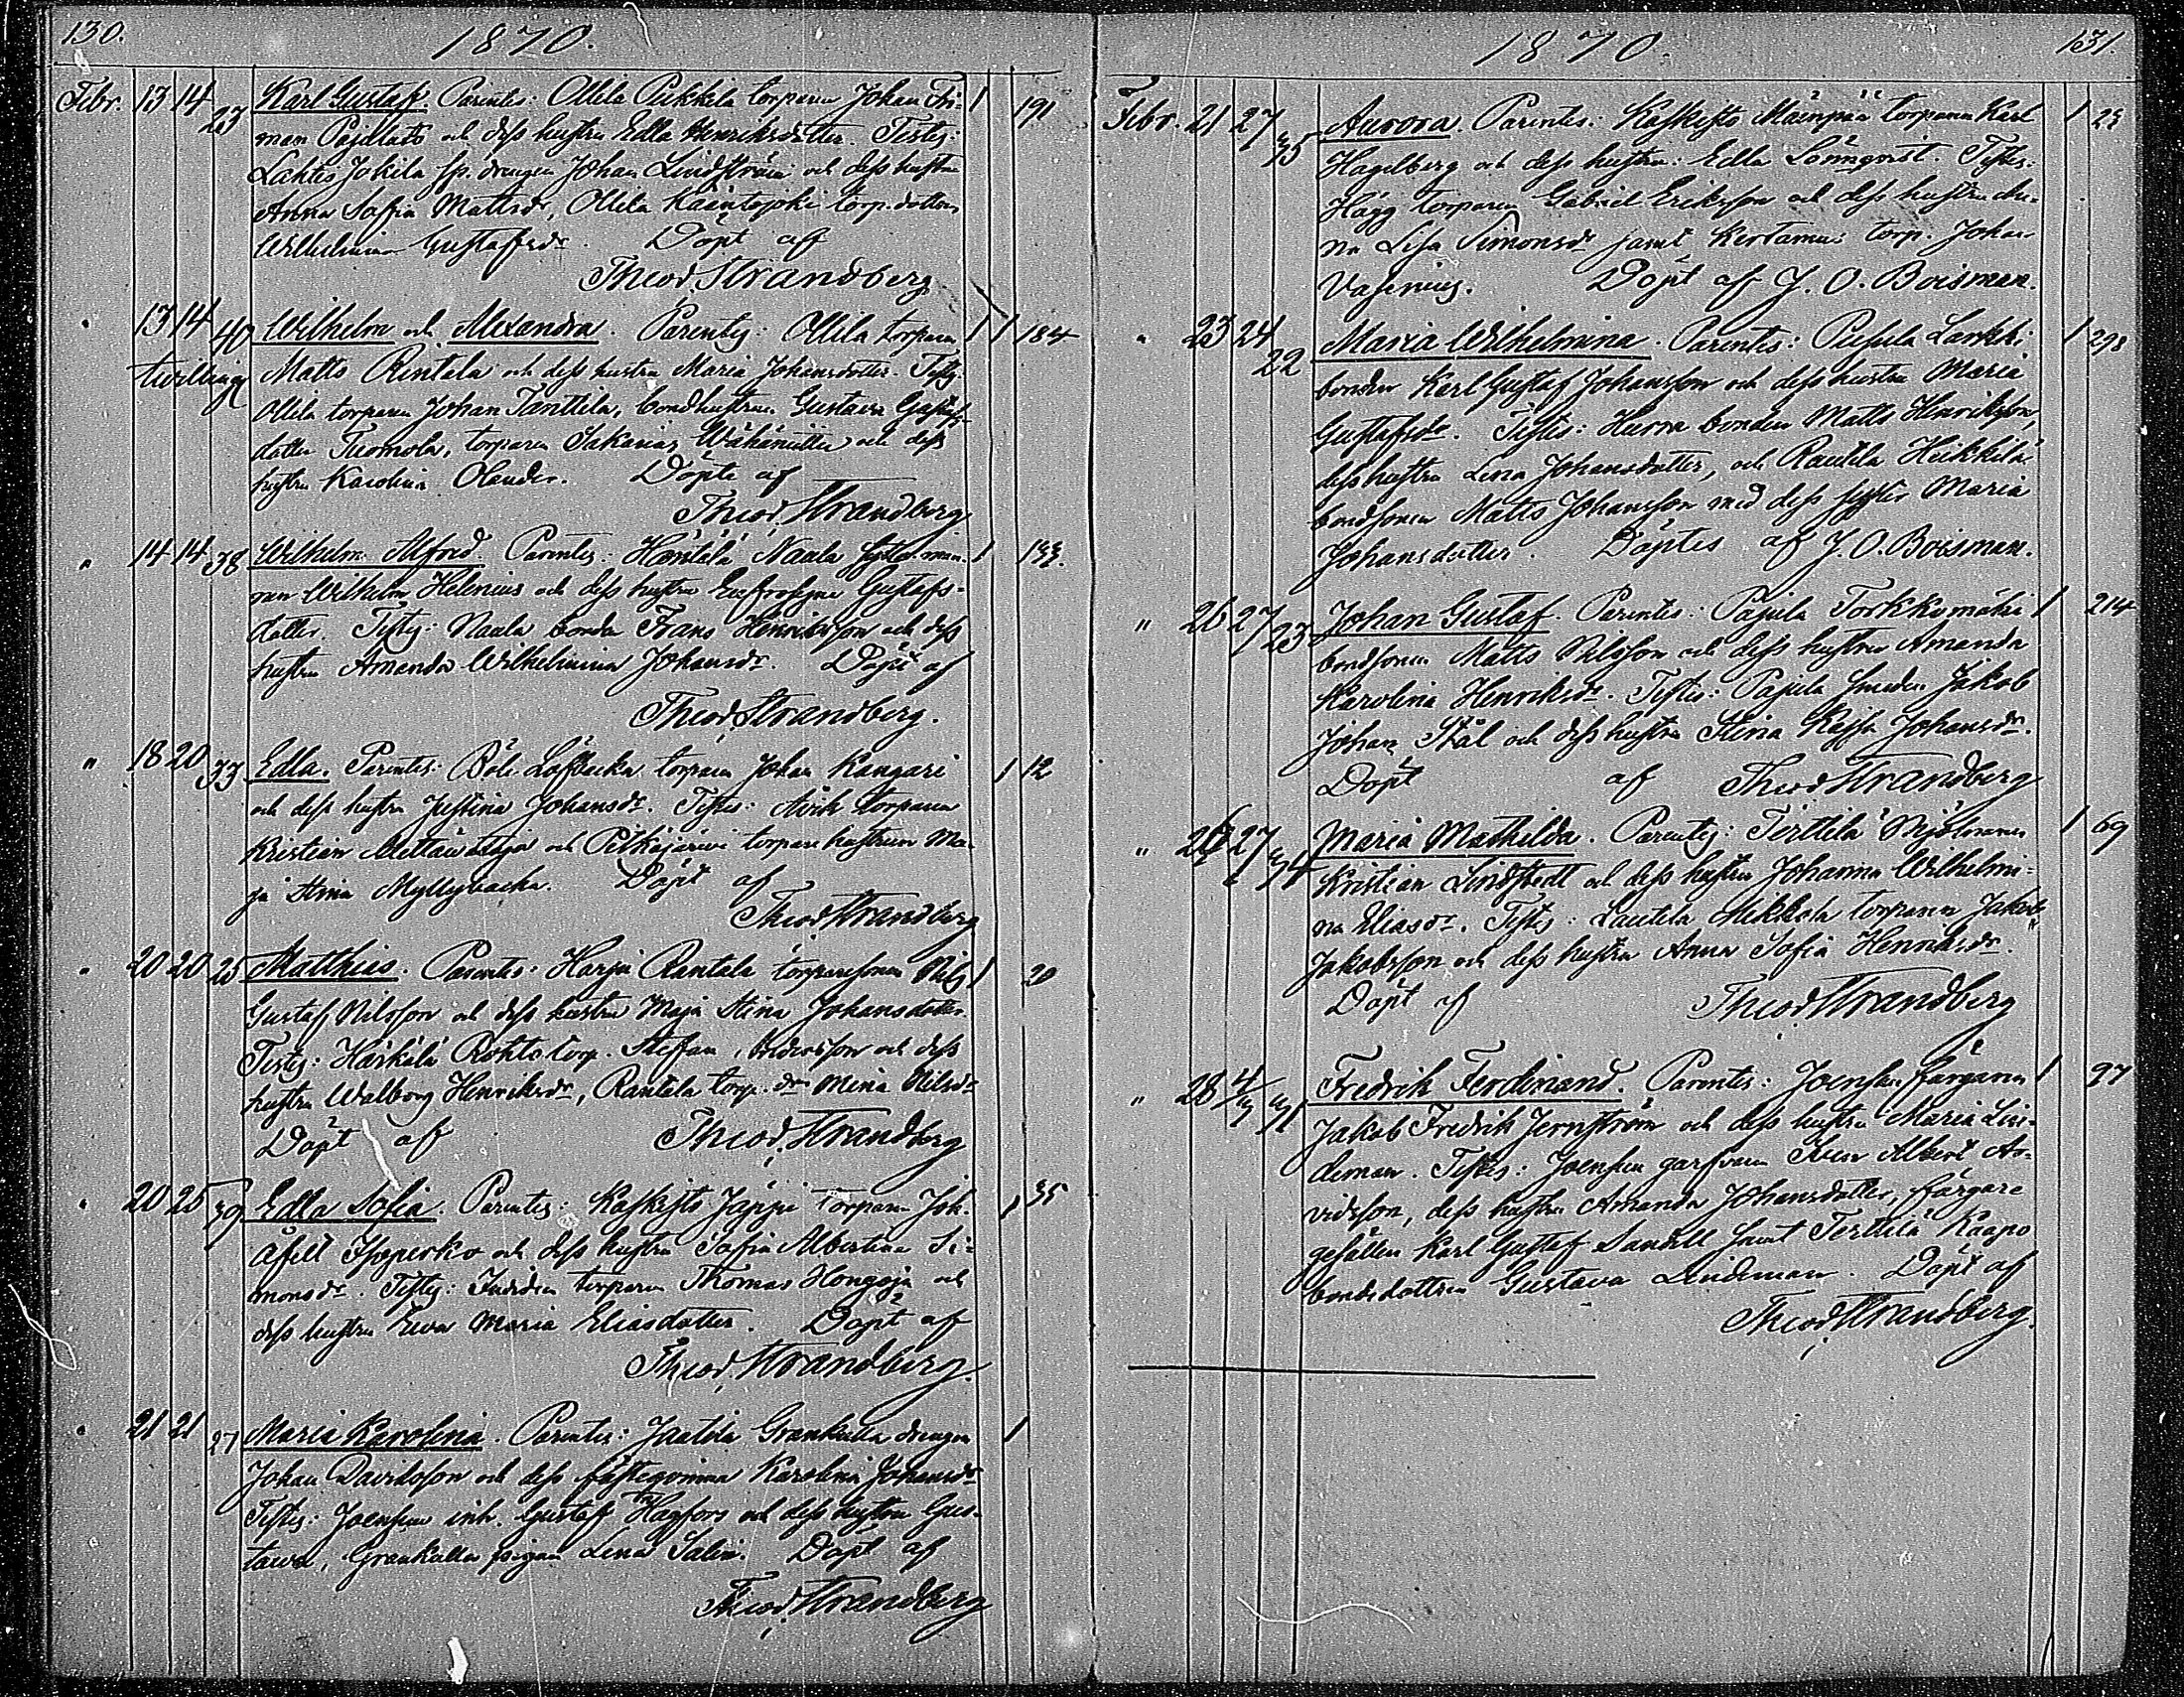 130.
1870.
Febr. 13 14 23 Karl Gustaf. Parentes: Ollila Pekkila torparen Johan Fri- 1 191
man Pajulato och dess hustru Edla Henriksdotter. Testes:
Lahtis Jokila sp. drengen Johan Lindström och dess hustru
Anna Safia Mattsdr, Ollila Kääntojoki torp. dottern
Wilhelmina Gustafsdr. Döpt af
Theod. Strandberg
" 13 14 40 Wilhelm och Alexandra. Parentes: Ollila torparen 1 1 184
twillingar Matts Rintala och dess hustru Maria Johansdotter. Testes:
Ollila torparen Johan Tanttila, bondhustrun Gustava Gustafs-
dotter Tuomola, torparen Sakarias Wähämüllü och dess
hustru Karolina Olander. Döpte af
Theod. Strandberg
" 14 14 38 Wilhelm Alfred. Parentes: Naala 1 133.
nen Wilhelm Helenius och dess hustru Eufrosyne Gustafs-
dotter. Testes: Naala bonden Frans Henriksson och dess
hustru Amanda Wilhelmina Johansdr. Döpt af
Theod. Strandberg.
" 18 20 33 Edla. Parentes: Böle Löfbacka torparen Johan Kangari 1 12
och dess hustru Justina Johansdr. Testes: Arik torparen
Kristian och Pitkäjärvi torpare hustrun Ma-
ja Stina Myllybacka. Döpt af
Theod. Strandberg
" 20 20 25 Matthias. Parentes: Harju Rantala torparesonen Nils 1 20
Gustaf Nilsson och dess hustru Maja Stina Johansdotter.
Testes: Härkälä Rohto torp. Steffan Andersson och dess
hustru Walborg Henriksdr, Rantala torp. dr Mina Nilsdr
Döpt af Theod. Strandberg
" 20 25 39 Edla Sofia. Parentes: Kaskisto Jäppi torparen Joh. 1 35
Afell Isoperko och dess hustru Sofia Albertina Si-
monsdr. Testes: Inriden torparen Thomas Hongoja och
dess hustru Ewa Maria Eliasdotter. Döpt af
Theod. Strandberg.
" 21 21 27 Maria Karolina. Parentes: Jaatila Grankulla drengen 1
Johan Davidsson och dess fästeqvinna Karolina Johansdr
Testes: Joensuu inh. Gustaf Hagfors och dess hustru Gus-
tawa, Grankulla pigan Lena Salin. Döpt af
Theod. Strandberg
131.
1870.
Febr. 21 27 35 Aurora. Parentes: Kaskisto Mäenpää torparen Karl 1 25
Hagelberg och dess hustru: Edla Lönnqvist. Testes:
Hägg torparen Gabriel Eriksson och dess hustru An-
na Lisa Simonsdr samt Kertamus torp. Johan
Vasenius. Döpt af J. O. Boisman.
" 23 24 22 Maria Wilhelmina. Parentes: Pusula Larkki 1 298
bonden Karl Gustaf Johansson och dess hustru Maria
Gustafsdr. Testes: Hurra bonden Matts Henriksson,
dess hustru Lena Johansdotter, och Rautila Heikkilä
bondsonen Matts Johansson med dess syster Maria
Johansdotter. Döptes af J. O. Boisman.
" 26 27 23 Johan Gustaf. Parentes: Pajula Torkkomäki 1 214
bondsonen Matts Nilsson och dess hustru Amanda
Karolina Henriksdr. Testes: Pajula smeden Jakob
Johan Stål och dess hustru Stina Kajsa Johansdr.
Döpt af Theod Strandberg
" 26 27 34 Maria Mathilda. Parentes: Terttilä Mjölnaren 1 69
Kristian Lindstedt och dess hustru Johanna Wilhelmi-
na Eliasdr. Testes: Lautela Mikkola torparen Jakob
Jakobsson och dess hustru Anna Sofia Henriksdr.
Döpt af Theod Strandberg
" 28 4/3 31 Fredrik Ferdinand. Parentes: Joensuu färgaren 1 97
Jakob Fredrik Jernström och dess hustru Maria Lin-
deman. Testes: Joensuu garfvaren Sven Albert Ar-
vidsson, dess hustru Amanda Johansdotter, färgare
gesällen Karl Gustaf Sandell samt Terttilä Kaapo
bondedottren Gustava Lindeman. Döpt af
Theod. Strandberg.